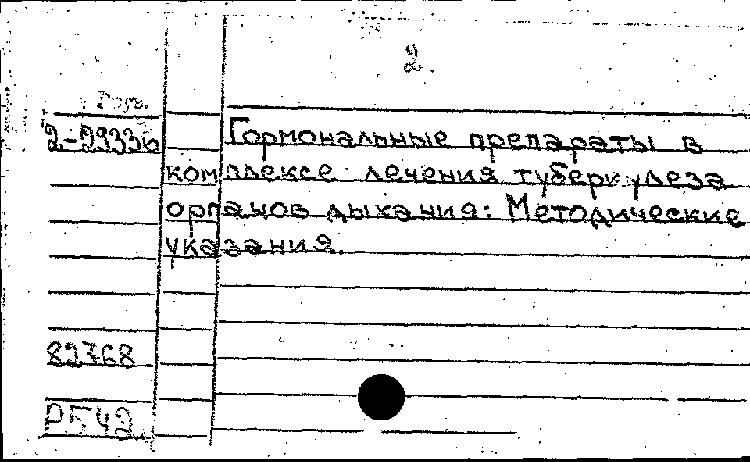 2.
2-29336 Гормональные препараты в
комплексе лечения туберкулеза
органов дыхания: Методические
указания.
82768
Р542